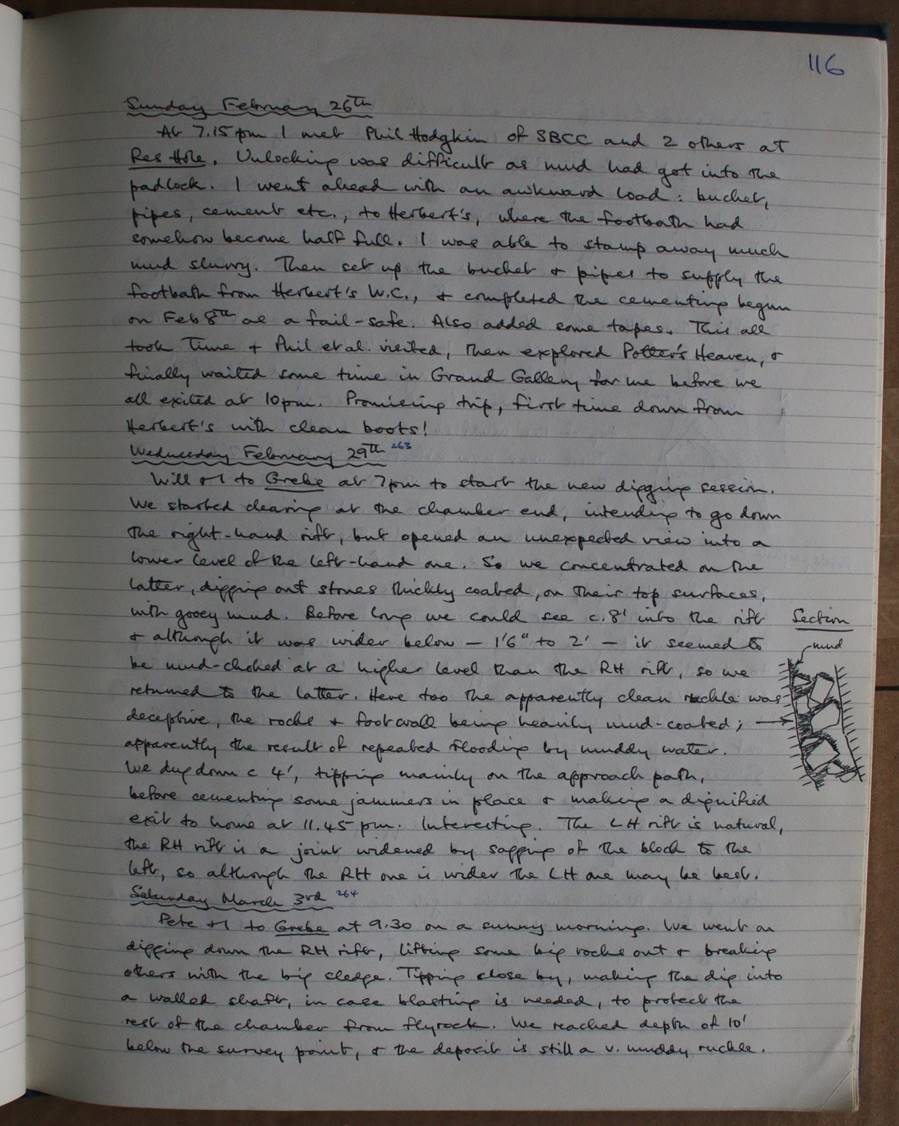 116
Sunday February 26th
At 7.15 pm I met Phil Hodgkin of SBCC and 2 others at
Res Hole. Unlocking was difficult as mud had got into the
padlock. I went ahead with an awkward load: bucket,
pipes, cement etc., to Herbert's, where the footbath had
somehow become half full. I was able to stamp away much
mud slurry. Then set up the bucket & pipes to supply the
footbath from Herbert's W.C., & completed the cementing begun
on Feb 8th as a fail-safe. Also added some tapes. This all
took time & Phil et al. visited, then explored Potter's Heaven, &
finally waited some time in Grand Gallery for me before we
all exited at 10pm. Promising trip, first time down from
Herbert's with clean boots!
Wednesday February 29th 263
Will & I to Grebe at 7pm to start the new digging session.
We started clearing at the chamber end, intending to go down
the right-hand rift, but opened an unexpected view into a
lower level of the left-hand one. So we concentrated on the
latter, digging out stones thickly coated, on their top surfaces,
with gooey mud. Before long we could see c. 8' into the rift
Section
& although it was wider below - 1'6" to 2' - it seemed to
mud
be mud-choked at a higher level than the RH rift, so we
returned to the latter. Here too the apparently clean ruckle was
deceptive, the rocks & footwall being heavily mud-coated;
apparently the result of repeated flooding by muddy water.
We dug down c 4', tipping mainly on the approach path,
before cementing some jammers in place & making a dignified
exit to home at 11.45 pm. Interesting. The LH rift is natural,
the RH rift is a joint widened by sagging of the block to the
left, so although the RH one is wider the LH one may be best.
Saturday March 3rd 264
Pete & I to Grebe at 9.30 on a sunny morning. We went on
digging down the RH rift, lifting some big rocks out & breaking
others with the big sledge. Tipping close by, making the dig into
a walled shaft, in case blasting is needed, to protect the
rest of the chamber from flyrock. We reached depth of 10'
below the survey point, & the deposit is still a v. muddy ruckle.